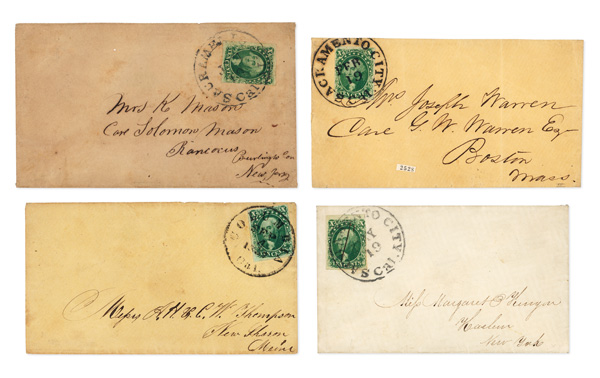 SACRAMENTO
CAL
Mrs K Mason
Care Solomon Mason
Rancocus
Burlington Co
New Jersy
SACRAMENTO CITY
FEB
19
Mrs Joseph Warren
Care G. W. Warren Esq
Boston
Mass.
2528
COLUMBIA
Cal.
Messrs R. H. & C. W. Thompson
New Sharon
Maine
ENTO CITY
Y
19
Cal
Miss Margaret
Harlem
New York